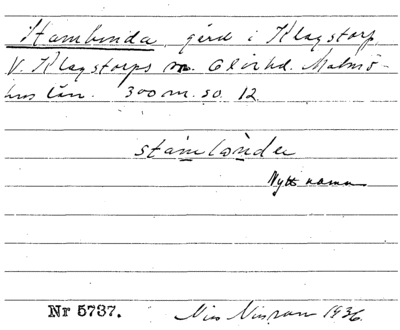 Stamlunda, gård i Klagstorp
V. Klagstorps sn. Oxie hd. Malmö-
hus län. 300 m. so. 12.
Nytt namn
Nr 5737. Nils Nilsson 1936.